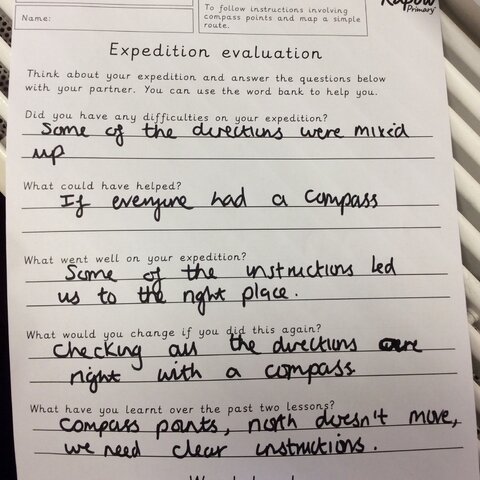 Name:
To follow instructions involving
compass points and map a simple
route.
Kapow
Primary
Expedition evaluation
Think about your expedition and answer the questions below
with your partner. You can use the word bank to help you.
Did you have any difficulties on your expedition?
Some of the directions were mixed
up
What could have helped?
If everyone had a compass
What went well on your expedition?
Some of the instructions led
us to the right place.
What would you change if you did this again?
Checking all the directions are
right with a compass
What have you learnt over the past two lessons?
Compass points, north doesn't move,
we need clear instructions.